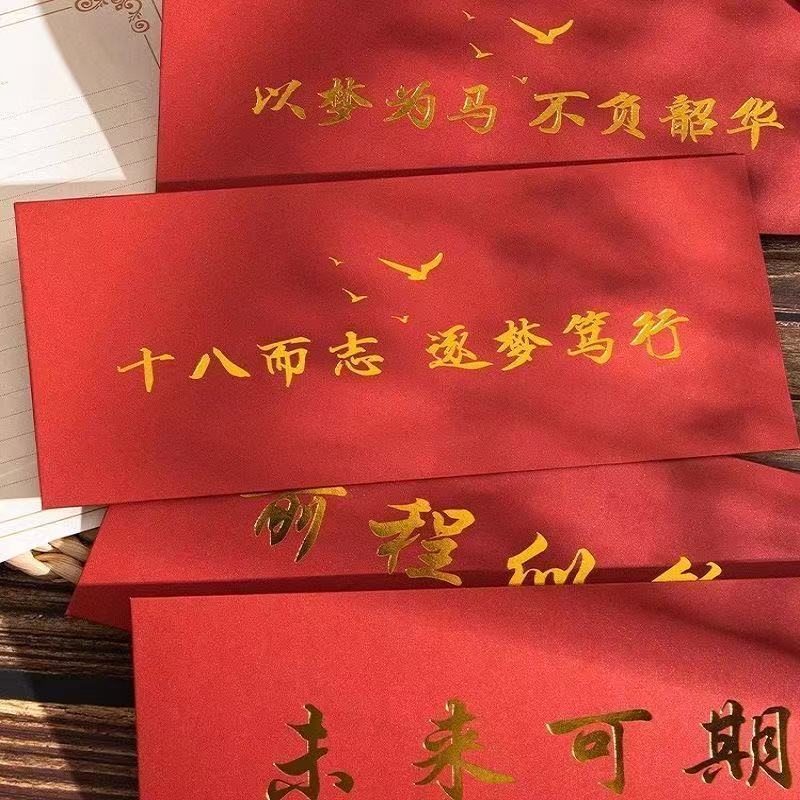 以梦为马 不负韶华
十八而志 逐梦笃行
前程似
未来可期